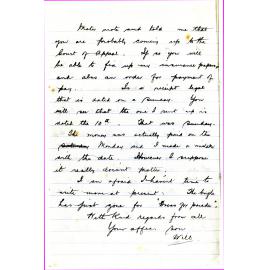 Mater wrote and told me that
you are probably coming up to the
Court of Appeal. If so you will
be able to fix up my insurance papers
and also an order for payment of
pay. Is a receipt legal
that is dated on a Sunday. You
will see that the one I sent up is
dated the 10th. That was Sunday.
The money was actually paid on the
Monday and I made a mistake
with the date. However I suppose
it really doesnt matter.
I am afraid I havent time to
write more at present. The bugle
has just gone for "Dress for parade"
With kind regards from all
Your affec. son
Will